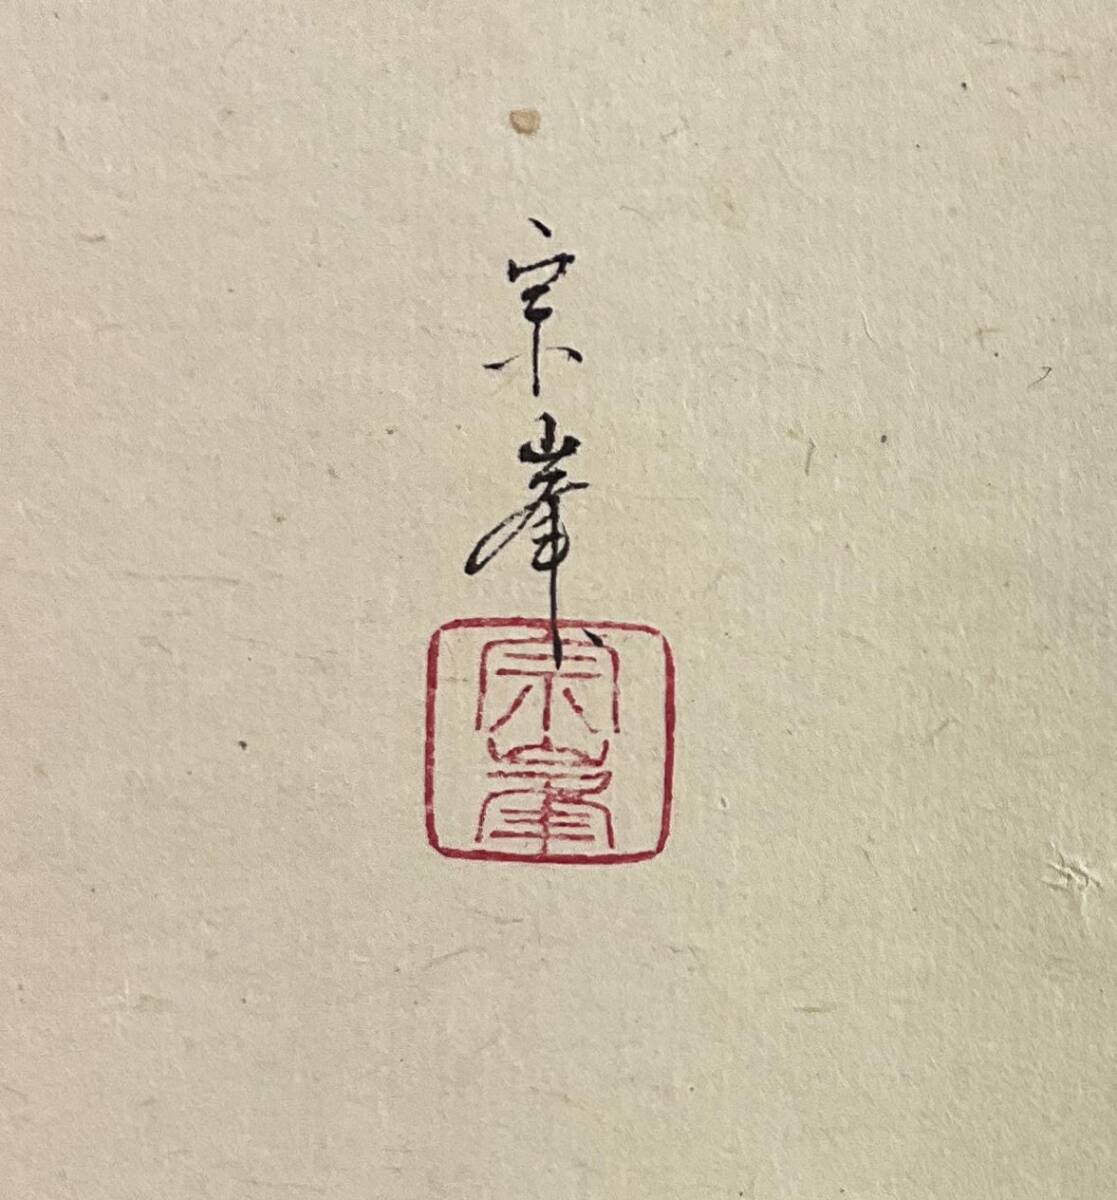 宗峯
宗峯